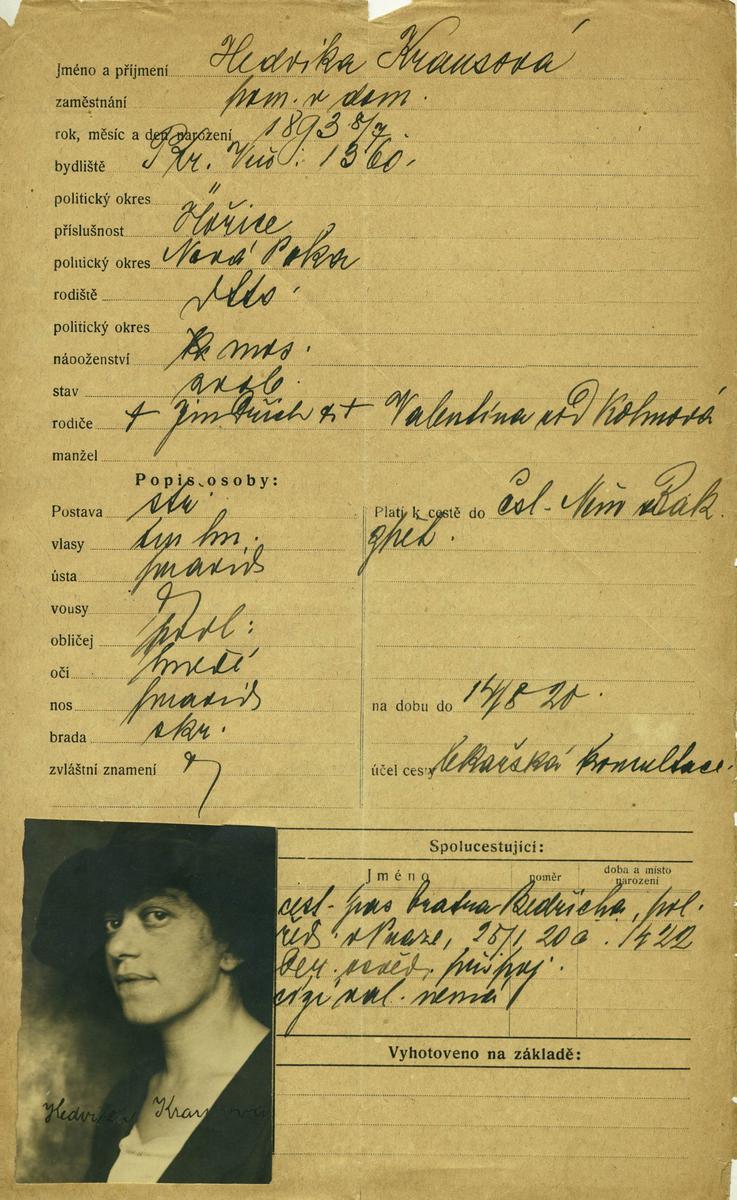 Jméno a příjmení Hedvika Krausová
zaměstnání pom. v dom.
rok, měsíc a den narození 1893 8/7
bydliště Kr. Vin. 1360.
politický okres "
příslušnost Hořice
politický okres Nová Paka
rodiště dtto
politický okres
náboženství mos.
stav svob.
rodiče + Jindřich & + Valentina roz Kolmová
manžel
Popis osoby:
Postava stř
vlasy tm hn.
ústa pravid
vousy
obličej podl:
oči hnědé
nos pravid
brada okr.
zvláštní znamení
Platí k cestě do čsl. Něm Rak
zpět.
na dobu do 14/8 20.
účel cesty lékařská konsultace.
Spolucestující:
Jméno poměr doba a místo narození
cest. pas bratra Bedřicha, pol.
řed. v Praze, 25/1 20 č. 1422
osvěd. přísl.
cizí nemá
Vyhotoveno na základě:
Hedvika Krausová